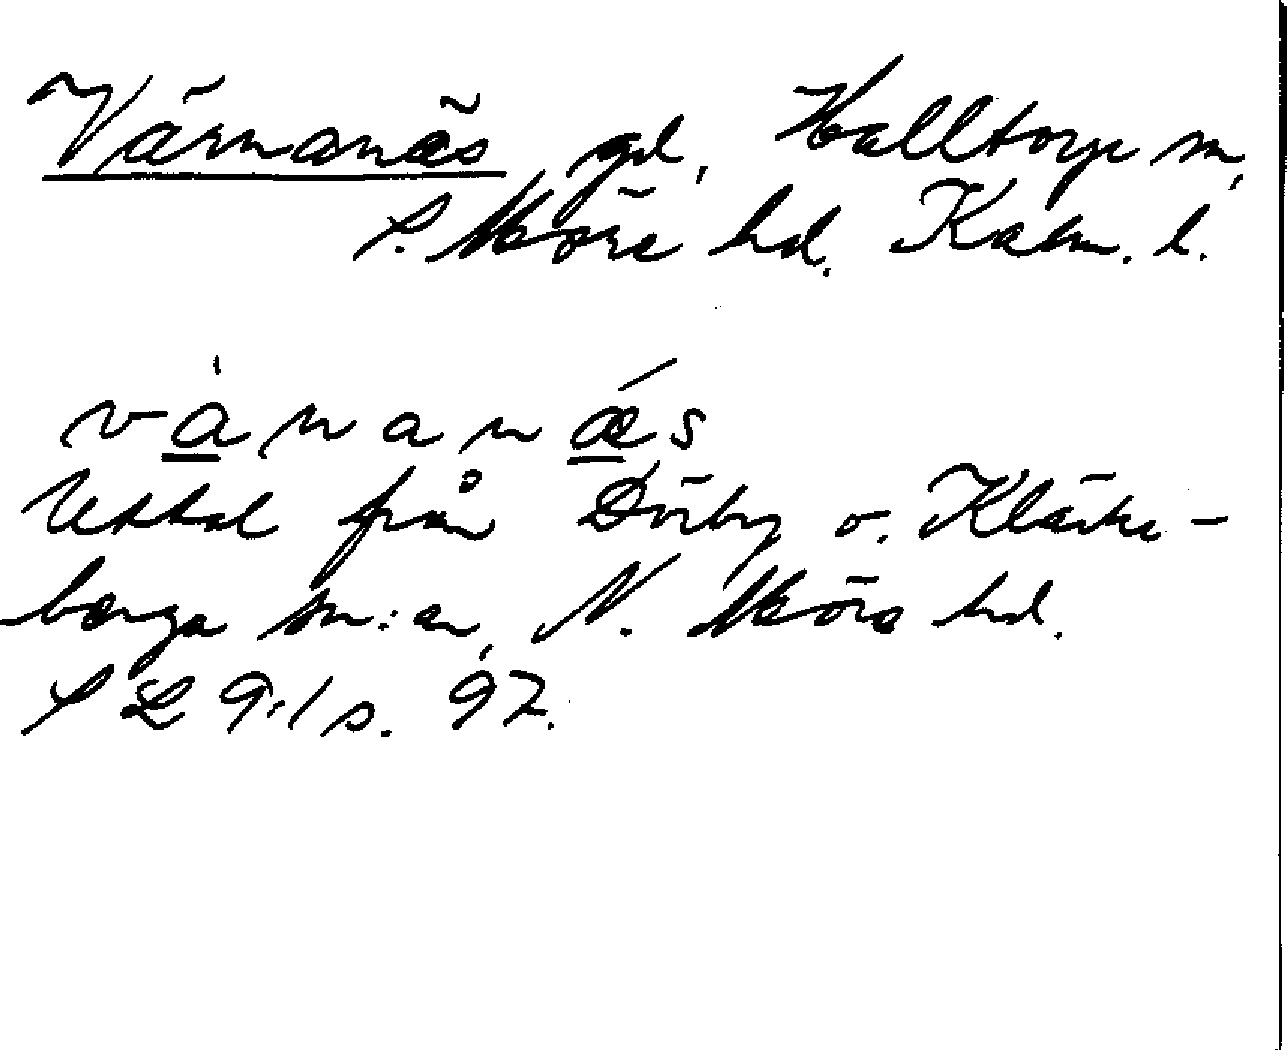 Värnanäs gd, Halltorp sn,
S. Möre hd. Kalm. l.
vànanǽs
Uttal från Dörby o. Kläcke-
berga sn:ar, N. Möre hd.
SL 9:1 s. 97.